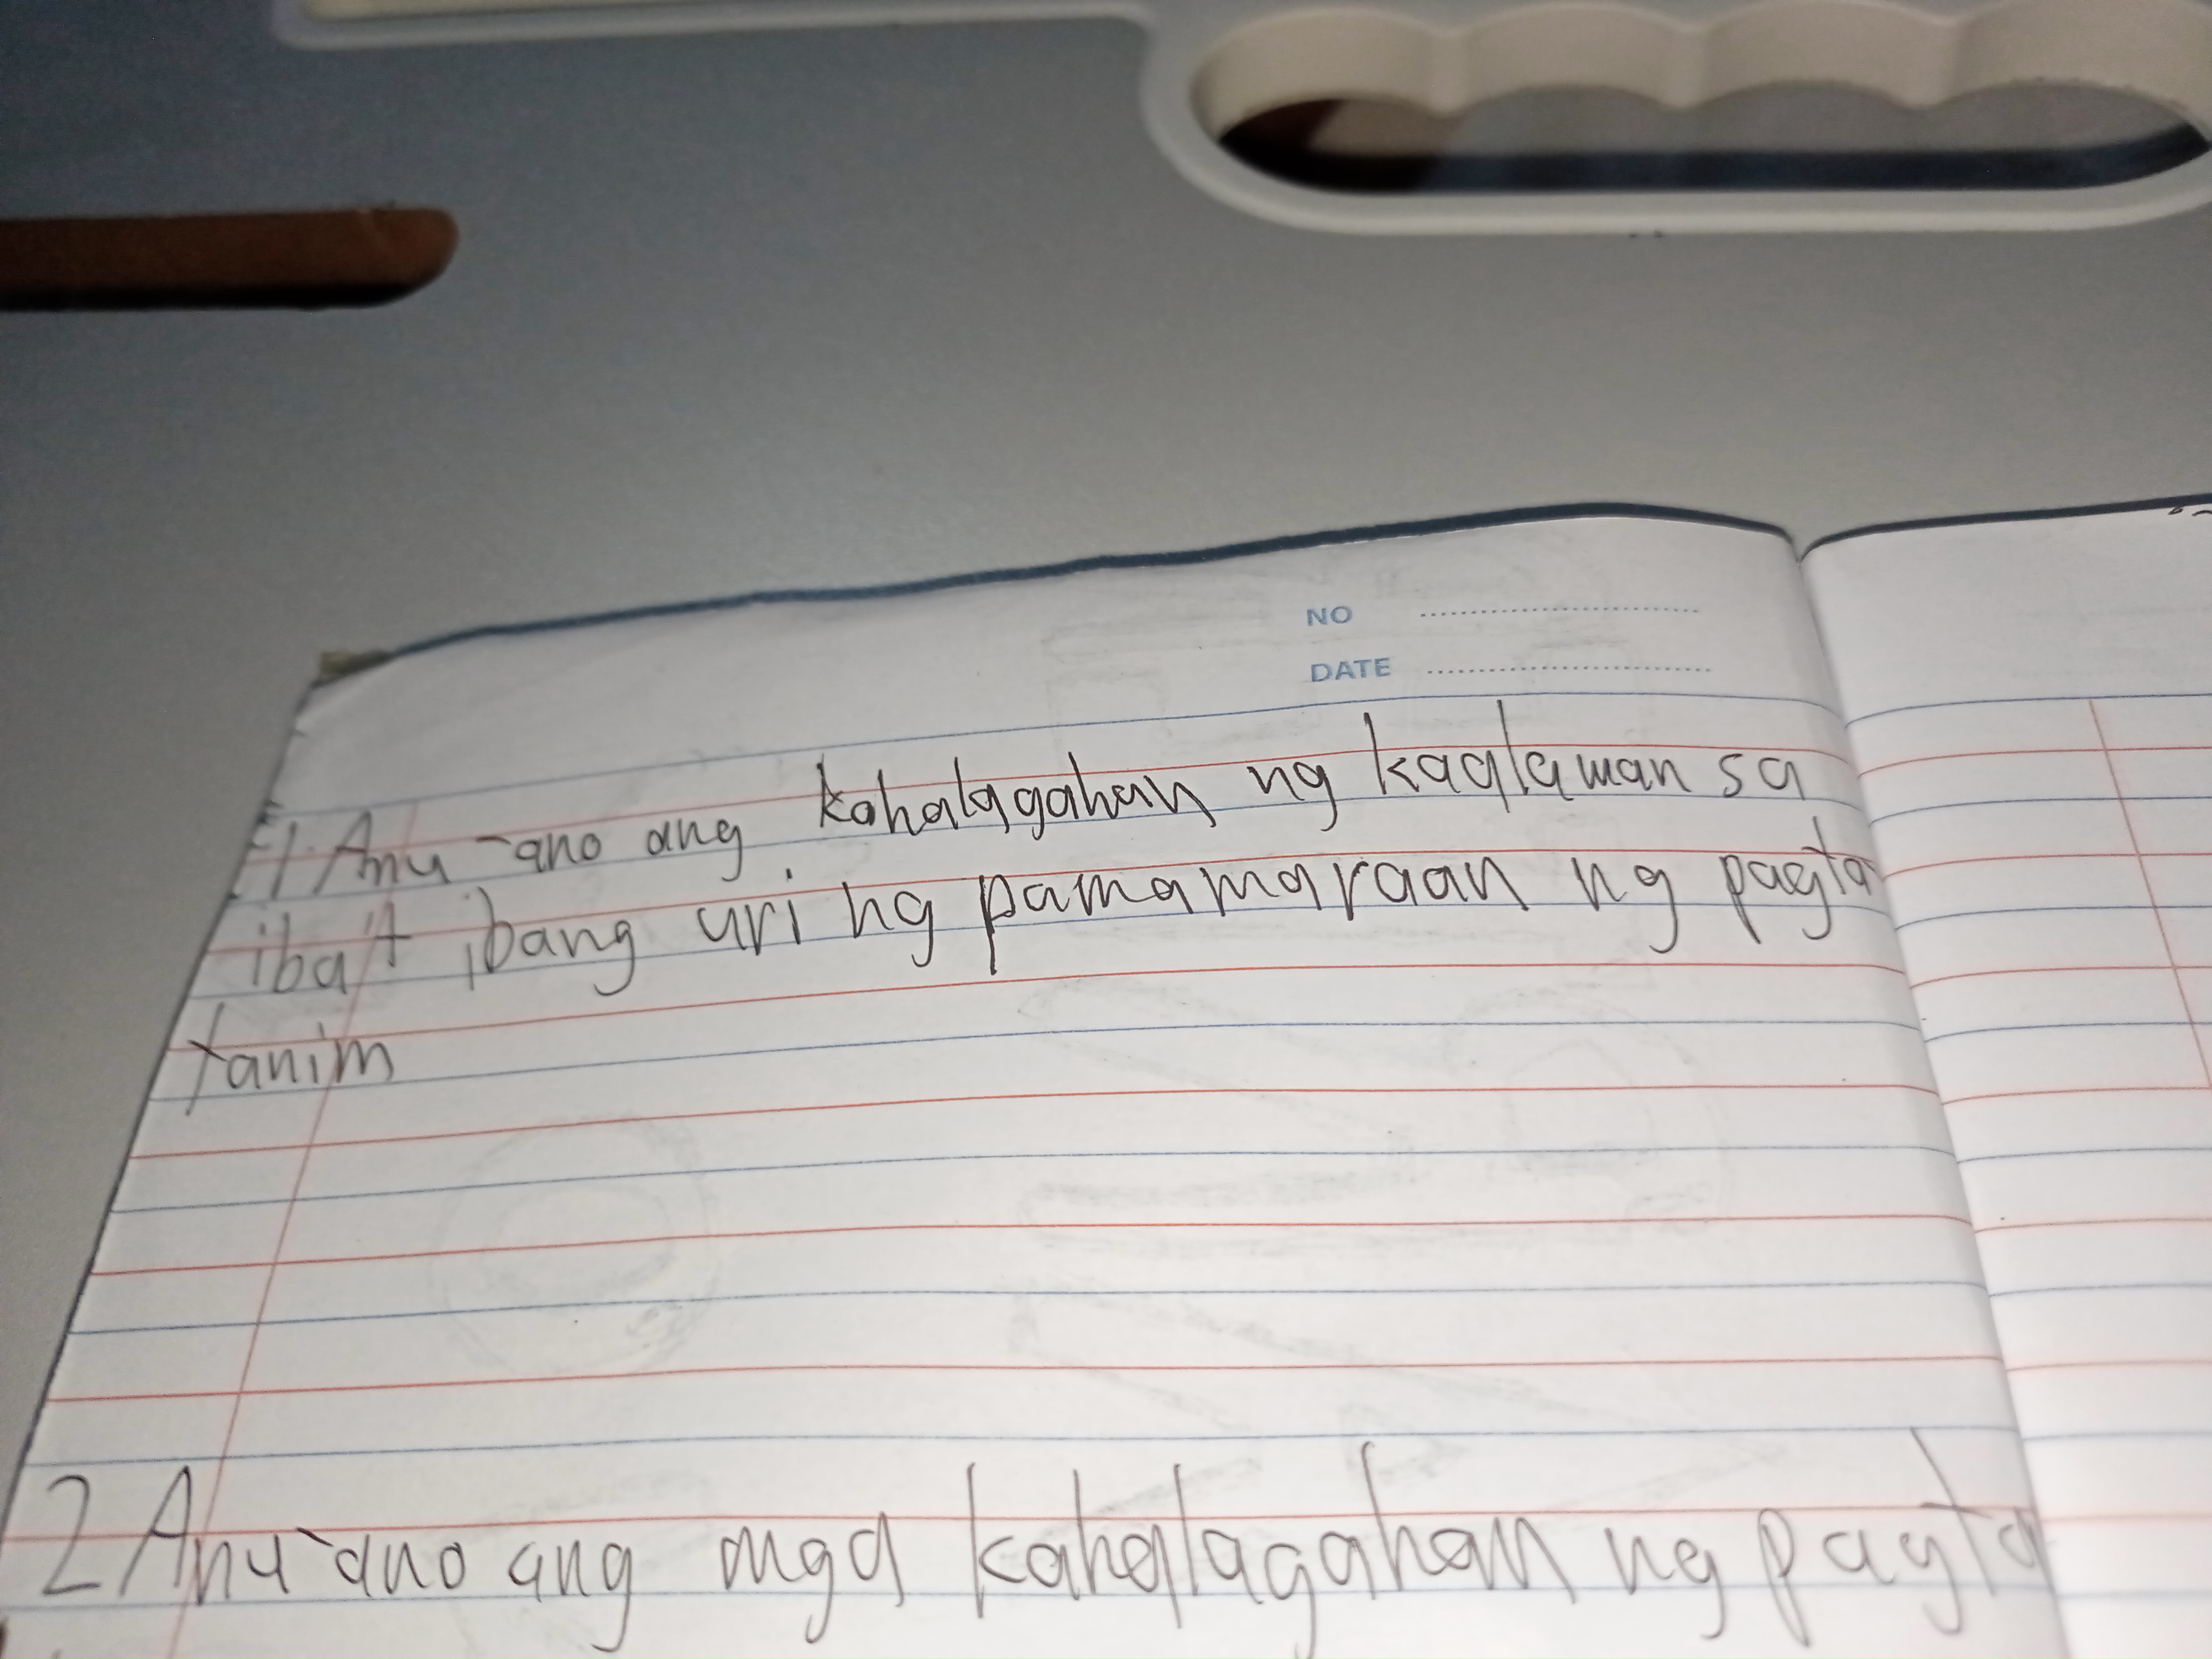 NO
DATE
1. Anu-ano ang kahalagahan ng kaalaman sa
iba't ibang uri ng pamamaraan ng pagta
tanim
2 Anu-ano ang mga kahalagahan ng pagta